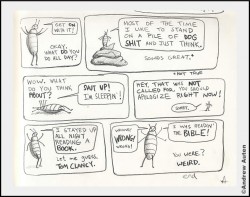 GET ON WITH IT!
OKAY.
WHAT DO YOU
DO ALL DAY?
MOST OF THE TIME
I LIKE TO STAND
ON A PILE OF DOG
SHIT AND JUST THINK.
SOUNDS GREAT.
WOW. WHAT
DO YOU THINK
ABOUT?
SHUT UP!
I'M SLEEPIN'!
HEY, THAT WAS NOT
CALLED FOR. YOU SHOULD
APOLOGIZE RIGHT NOW!
SORRY.
I STAYED UP
ALL NIGHT
READING A
BOOK.
LET ME GUESS.
TOM CLANCY.
WRONG!
WRONG!
WRONG!
I WAS READIN'
THE BIBLE!
YOU WERE?
WEIRD.
END
©Andrew Auten